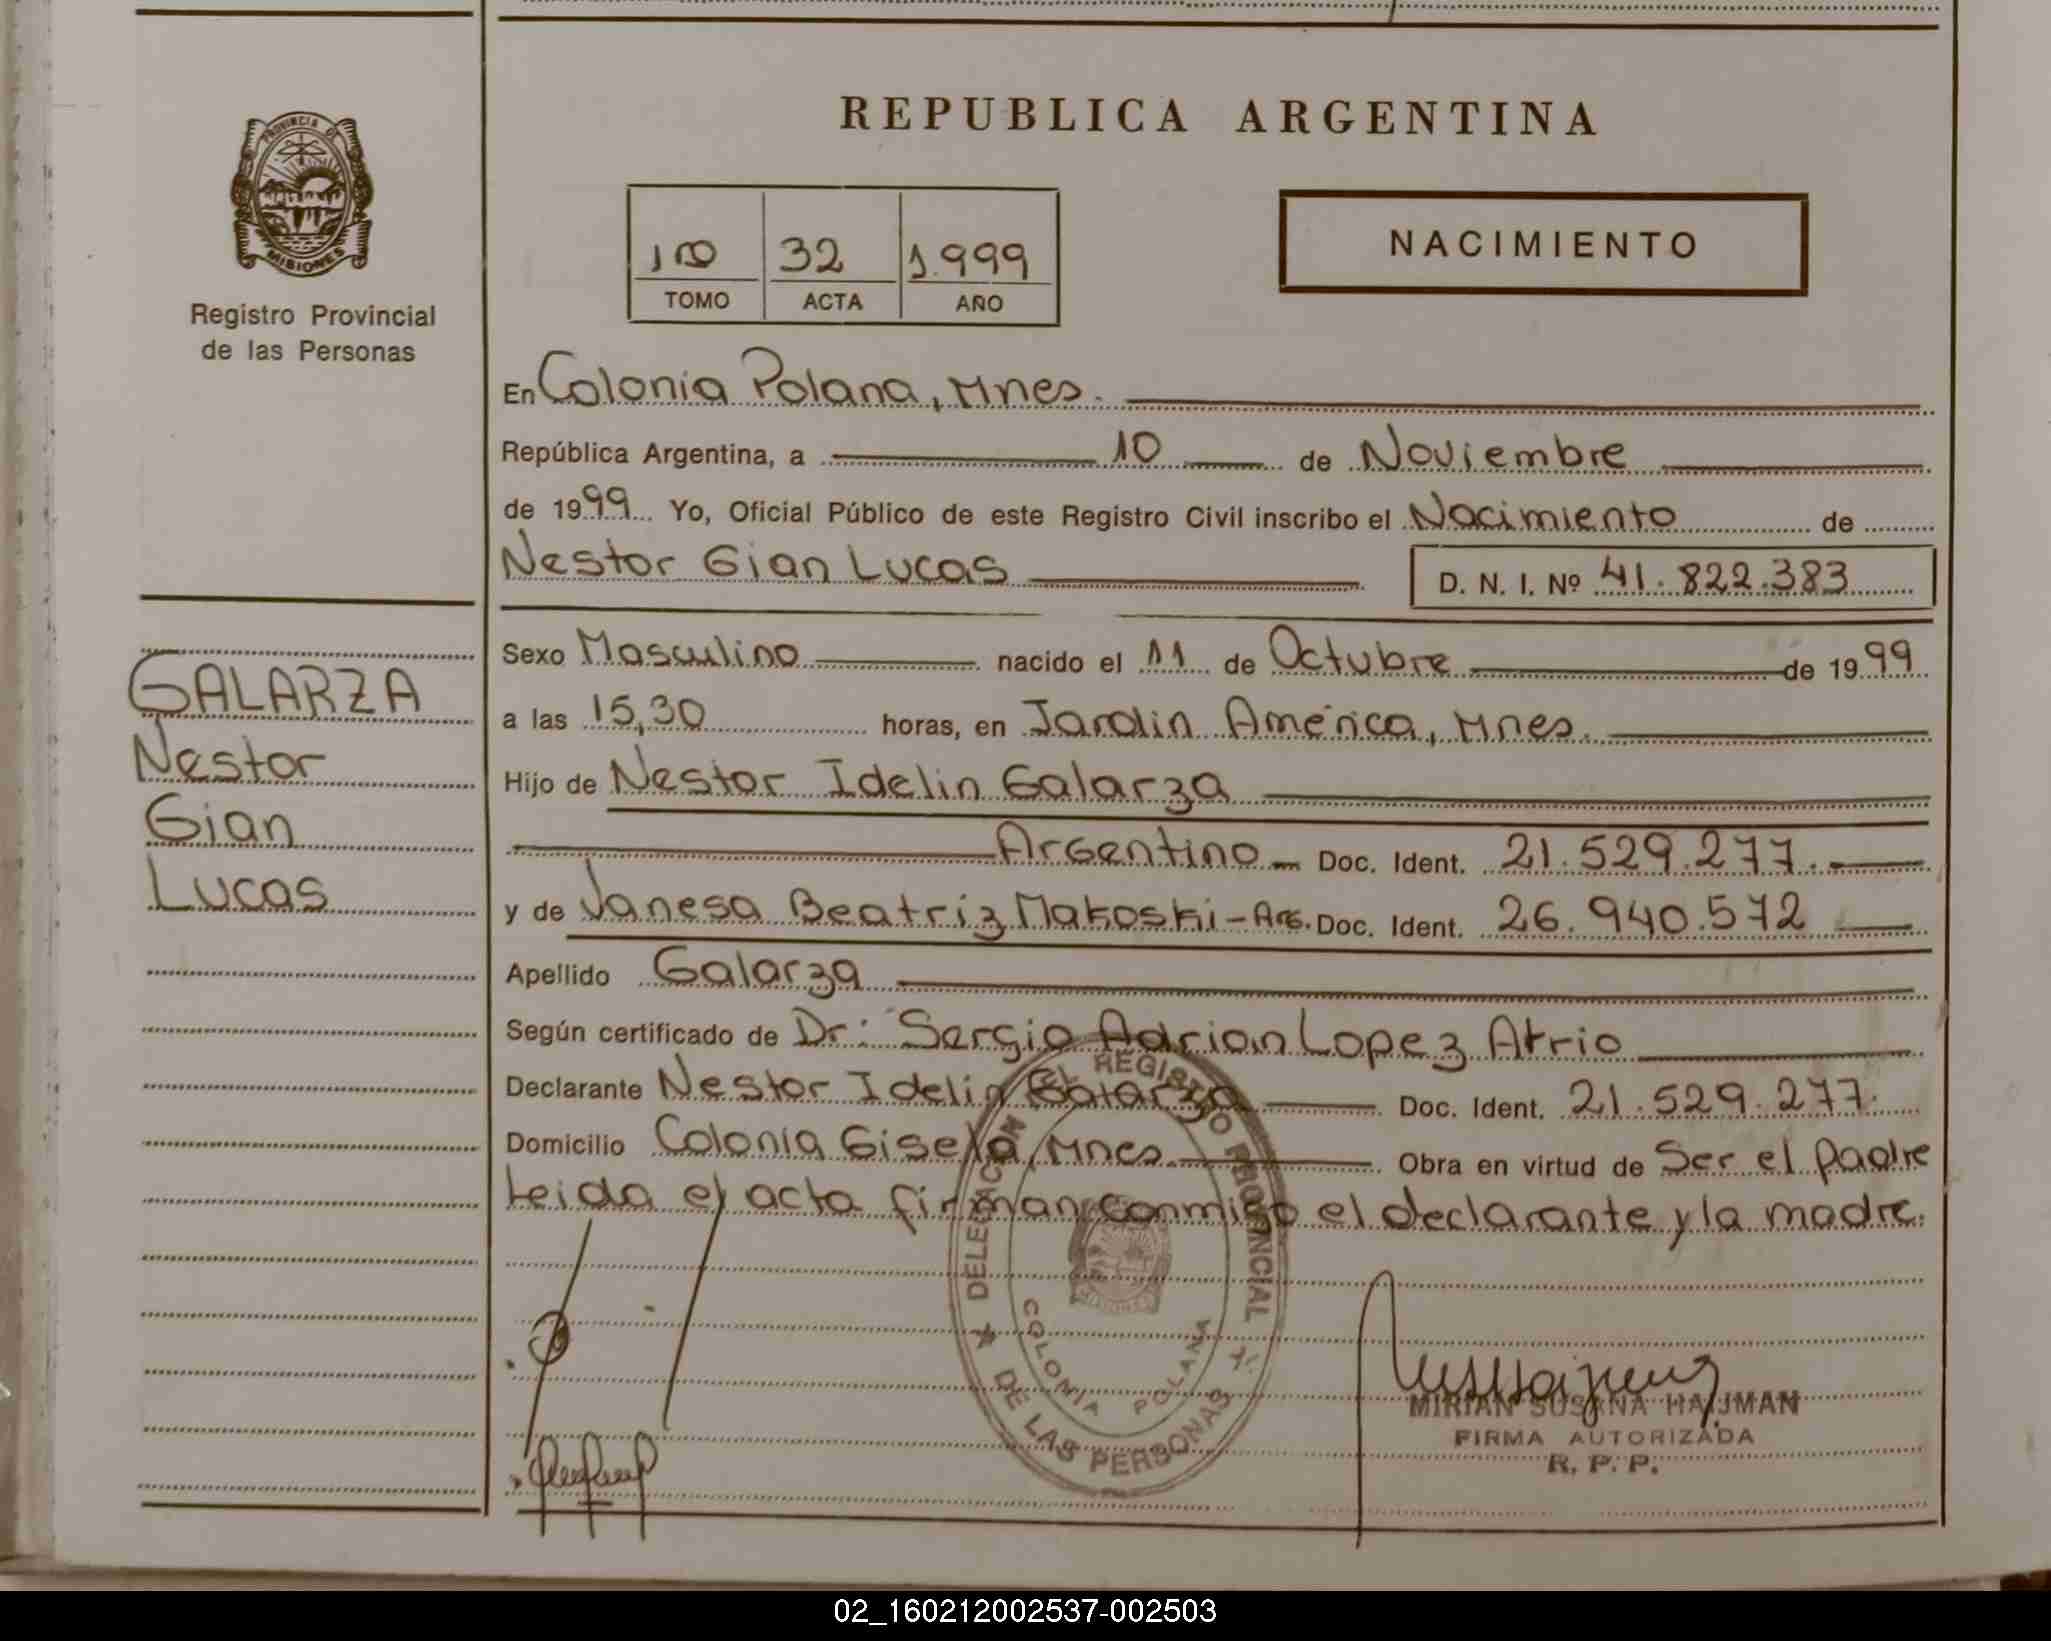 REPUBLICA ARGENTINA
PROVINCIA DE
MISIONES
Registro Provincial
de las Personas
32 1.999
TOMO ACTA AÑO
NACIMIENTO
En Colonia Polana, Mnes.
República Argentina, a 10 de Noviembre
de 1999 Yo, Oficial Público de este Registro Civil inscribo el Nacimiento de
Nestor Gian Lucas D. N. I. Nº 41.822.383
GALARZA
Nestor
Gian
Lucas
Sexo Masculino nacido el 11 de Octubre de 1999
a las 15,30 horas, en Jardin América, Mnes.
Hijo de Nestor Idelin Galarza
Argentino Doc. Ident. 21.529.277.
y de Vanesa Beatriz Makoski - Arg. Doc. Ident. 26.940.572
Apellido Galarza
Según certificado de Dr: Sergio Adrian Lopez Atrio
Declarante Nestor Idelin Galarza Doc. Ident. 21.529.277.
Domicilio Colonia Gisela, Mnes. Obra en virtud de Ser el padre
Leida el acta firman conmigo el declarante y la madre.
DELEGACION EL REGISTRO PROVINCIAL
DE LAS PERSONAS
COLONIA POLANA
MISIONES
MIRIAN SUSANA HAIJMAN
FIRMA AUTORIZADA
R. P. P.
02_160212002537-002503